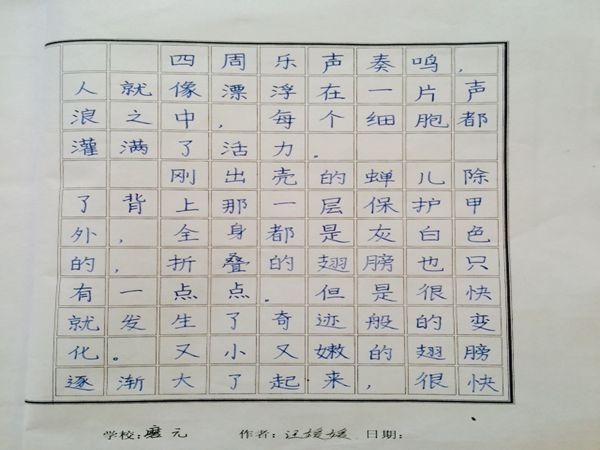 四周乐声奏鸣，
人就像漂浮在一片声
浪之中，每个细胞都
灌满了活力。
刚出壳的蝉儿除
了背上那一层保护甲
外，全身都是灰白色
的，折叠的翅膀也只
有一点点。但是很快
就发生了奇迹般的变
化。又小又嫩的翅膀
逐渐大了起来，很快
学校:磨元 作者:汪媛媛 日期: